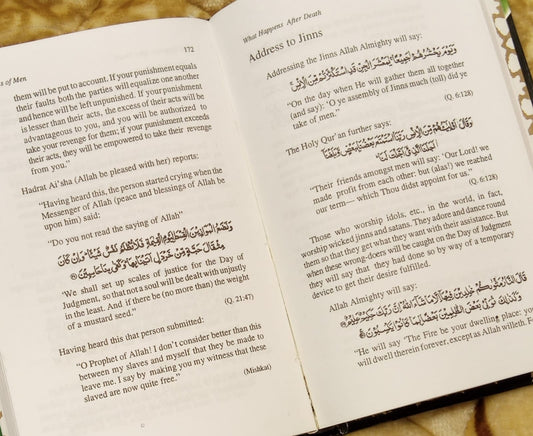 s of Men
172
them will be put to account. If your punishment equals
their faults both the parties will equalize one another
and hence will be left unpunished. If your punishment
is lesser than their acts, the excess of their acts will be
advantageous to you, and you will be authorized to
take your revenge for them; if your punishment exceeds
their acts, they will be empowered to take their revenge
from you."
Hadrat Ai'sha (Allah be pleased with her) reports:
"Having heard this, the person started crying when the
Messenger of Allah (peace and blessings of Allah be
upon him) said:
"Do you not read the saying of Allah"
وَنَضَعُ الْمَوَازِينَ الْقِسْطَ لِيَوْمِ الْقِيٰمَةِ فَلَا تُظْلَمُ نَفْسٌ شَيْئًا وَاِنْ كَانَ
مِثْقَالَ حَبَّةٍ مِّنْ خَرْدَلٍ اَتَيْنَا بِهَا وَكَفٰى بِنَا حَاسِبِيْنَ
"We shall set up scales of justice for the Day of
Judgment, so that not a soul will be dealt with unjustly
in the least. And if there be (no more than) the weight
of a mustard seed."
(Q. 21:47)
Having heard this that person submitted:
"O Prophet of Allah! I don't consider better than this
between my slaves and myself that they be made to
leave me. I say by making you my witness that these
slaved are now quite free."
(Mishkat)
What Happens After Death
Address to Jinns
Addressing the Jinns Allah Almighty will say:
وَيَوْمَ يَحْشُرُهُمْ جَمِيْعًا يٰمَعْشَرَ الْجِنِّ قَدِ اسْتَكْثَرْتُمْ مِّنَ الْاِنْسِ
"On the day when He will gather them all together
(and say): "O ye assembly of Jinns much (toll) did ye
take of men."
(Q. 6:128)
The Holy Qur'an further says:
وَقَالَ اَوْلِيٰٓؤُهُمْ مِّنَ الْاِنْسِ رَبَّنَا اسْتَمْتَعَ بَعْضُنَا بِبَعْضٍ وَّبَلَغْنَآ
اَجَلَنَا الَّذِيْٓ اَجَّلْتَ لَنَا
"Their friends amongst men will say: 'Our Lord! we
made profit from each other: but (alas!) we reached
our term— which Thou didst appoint for us."
(Q. 6:128)
Those who worship idols, etc., in the world, in fact,
worship wicked jinns and satans. They adore and dance round
them so that they get what they want with their assistance. But
when these wrong-doers will be caught on the Day of Judgment
they will say that they had done so by way of a temporary
device to get their desire fulfilled.
Allah Almighty will say:
قَالَ النَّارُ مَثْوٰىكُمْ خٰلِدِيْنَ فِيْهَآ اِلَّا مَا شَآءَ اللّٰهُ اِنَّ رَبَّكَ حَكِيْمٌ عَلِيْمٌ
وَكَذٰلِكَ نُوَلِّيْ بَعْضَ الظّٰلِمِيْنَ بَعْضًۢا بِمَا كَانُوْا يَكْسِبُوْنَ
"He will say 'The Fire be your dwelling place: you
will dwell therein forever, except as Allah willeth. F